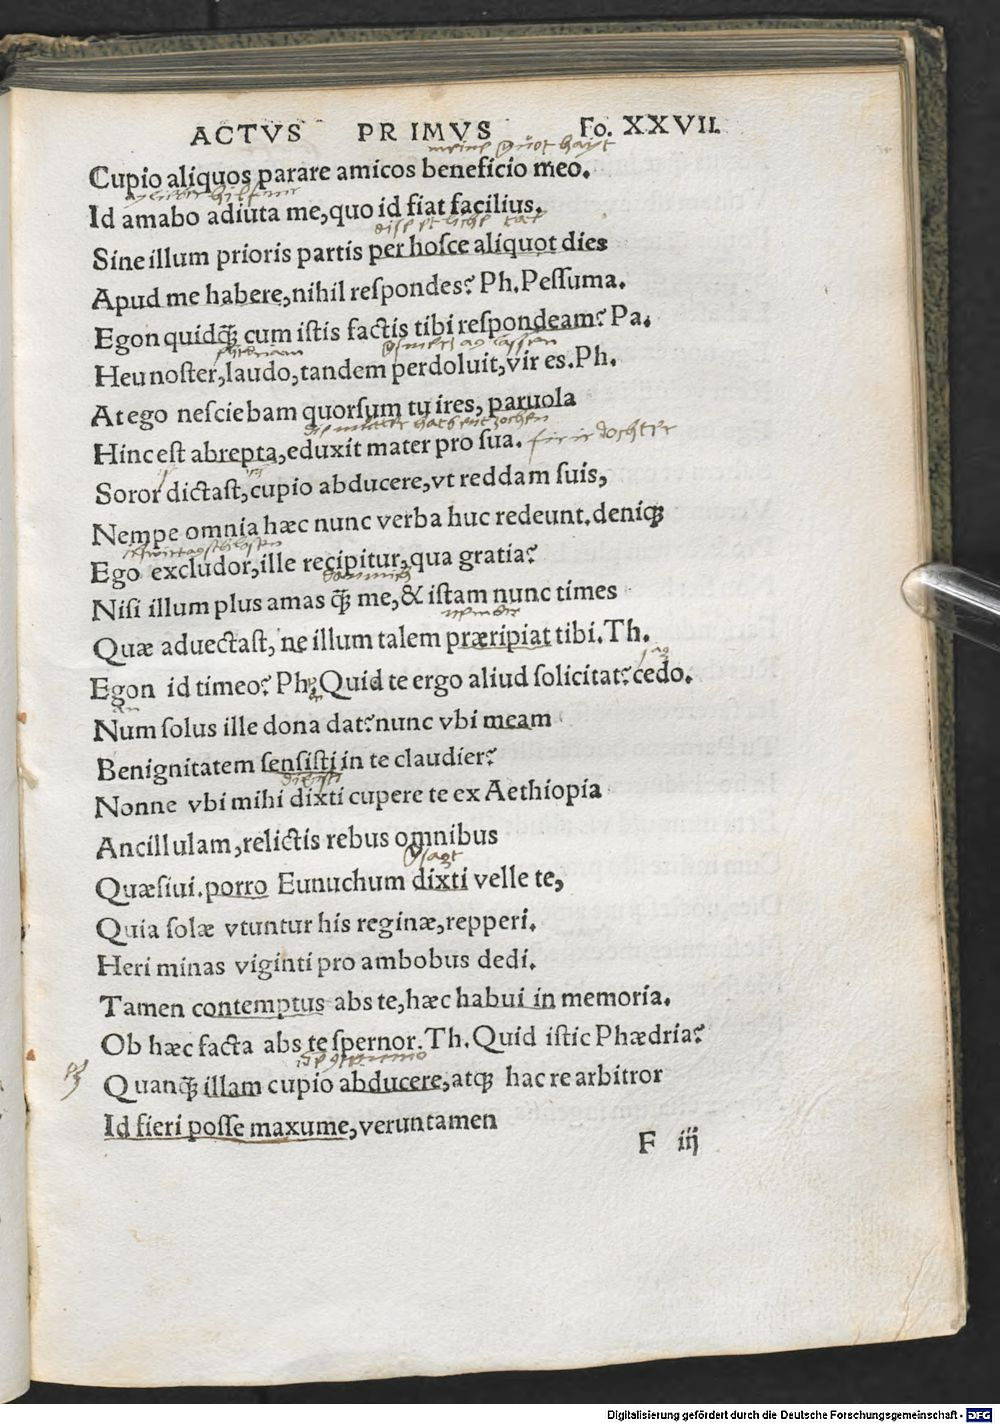 ACTVS PRIMVS Fo. XXVII.
Cupio aliquos parare amicos beneficio meo.
Id amabo adiuta me,quo id fiat facilius.
Sine illum prioris partis per hoſce aliquot dies
Apud me habere,nihil reſpondes? Ph.Peſſuma.
Egon quidq̃ cum iſtis factis tibi reſpondeam? Pa.
Heu noſter,laudo,tandem perdoluit,vir es.Ph.
At ego neſciebam quorſum tu ires, paruola
die mutter hat
Hinc est abrepta,eduxit mater pro ſua.
Soror dictaſt,cupio abducere,vt reddam ſuis,
Nempe omnia hæc nunc verba huc redeunt.deniqꝫ
Ego excludor,ille recipitur,qua gratia?
Niſi illum plus amas q̃ me,& iſtam nunc times
Quæ aduectaſt, ne illum talem præripiat tibi.Th.
Egon id timeo? Ph. Quid te ergo aliud ſolicitat?cedo.
Num ſolus ille dona dat?nunc vbi meam
Benignitatem ſenſiſti in te claudier?
Nonne vbi mihi dixti cupere te ex Aethiopia
Ancillulam,relictis rebus omnibus
Quæſiui.porro Eunuchum dixti velle te,
Quia ſolæ vtuntur his reginæ,repperi.
Heri minas viginti pro ambobus dedi.
Tamen contemptus abs te,hæc habui in memoria.
Ob hæc facta abs te ſpernor.Th.Quid iſtic Phædria?
Quanq̃ illam cupio abducere,atqꝫ hac re arbitror
Id fieri poſſe maxume,veruntamen
F iij
Digitalisierung gefördert durch die Deutsche Forschungsgemeinschaft - DFG